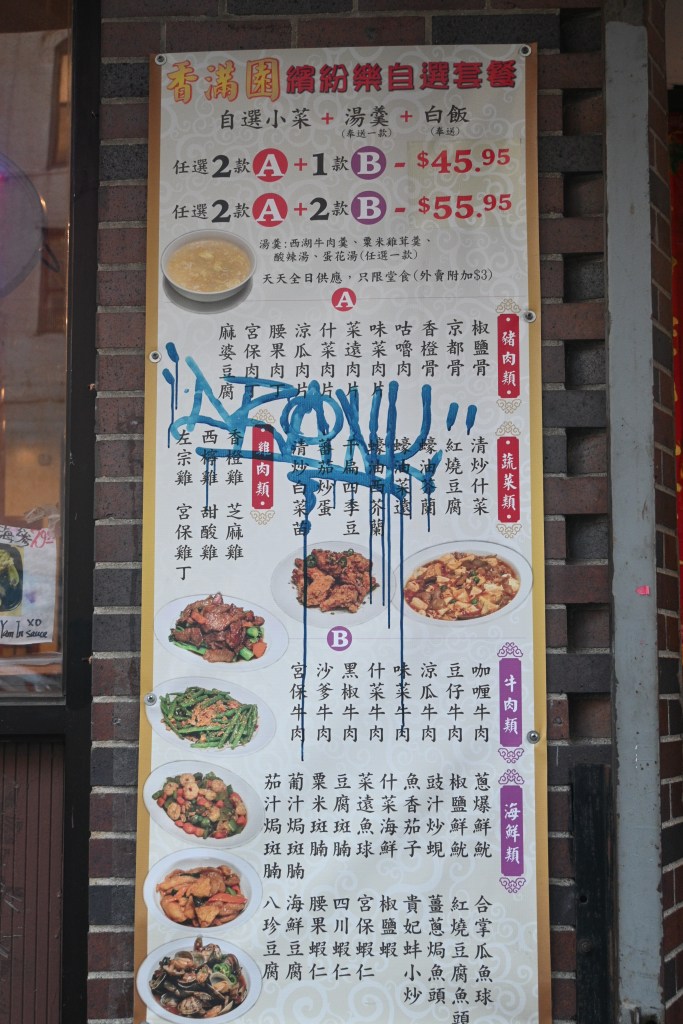 香滿園繽紛樂自選套餐
自選小菜 + 湯羹 + 白飯
(奉送一款) (奉送)
任選2款A+1款B - $45.95
任選2款A+2款B - $55.95
湯羹:西湖牛肉羹、粟米雞茸羹、
酸辣湯、蛋花湯(任選一款)
天天全日供應，只限堂食(外賣附加$3)
A
豬肉類
椒鹽骨
京都骨
香橙骨
咕嚕肉
味菜肉片
菜遠肉片
什菜肉片
涼瓜肉片
腰果肉丁
宮保肉丁
麻婆豆腐
蔬菜類
清炒什菜
紅燒豆腐
蠔油芥蘭
蠔油菜遠
蠔油西芥蘭
干扁四季豆
蕃茄炒蛋
清炒白菜苗
雞肉類
香橙雞
西檸雞
左宗雞
芝麻雞
甜酸雞
宮保雞丁
B
牛肉類
咖喱牛肉
豆仔牛肉
涼瓜牛肉
味菜牛肉
什菜牛肉
黑椒牛肉
沙爹牛肉
宮保牛肉
海鮮類
蔥爆鮮魷
椒鹽鮮魷
豉汁炒蜆
魚香茄子
什菜海鮮
菜遠魚球
豆腐斑腩
粟米斑腩
葡汁焗斑腩
茄汁焗斑腩
合掌瓜魚球
紅燒豆腐魚頭
薑蔥焗魚頭
貴妃蚌小炒
椒鹽蝦
宮保蝦仁
四川蝦仁
腰果蝦仁
海鮮豆腐
八珍豆腐
XO
sauce